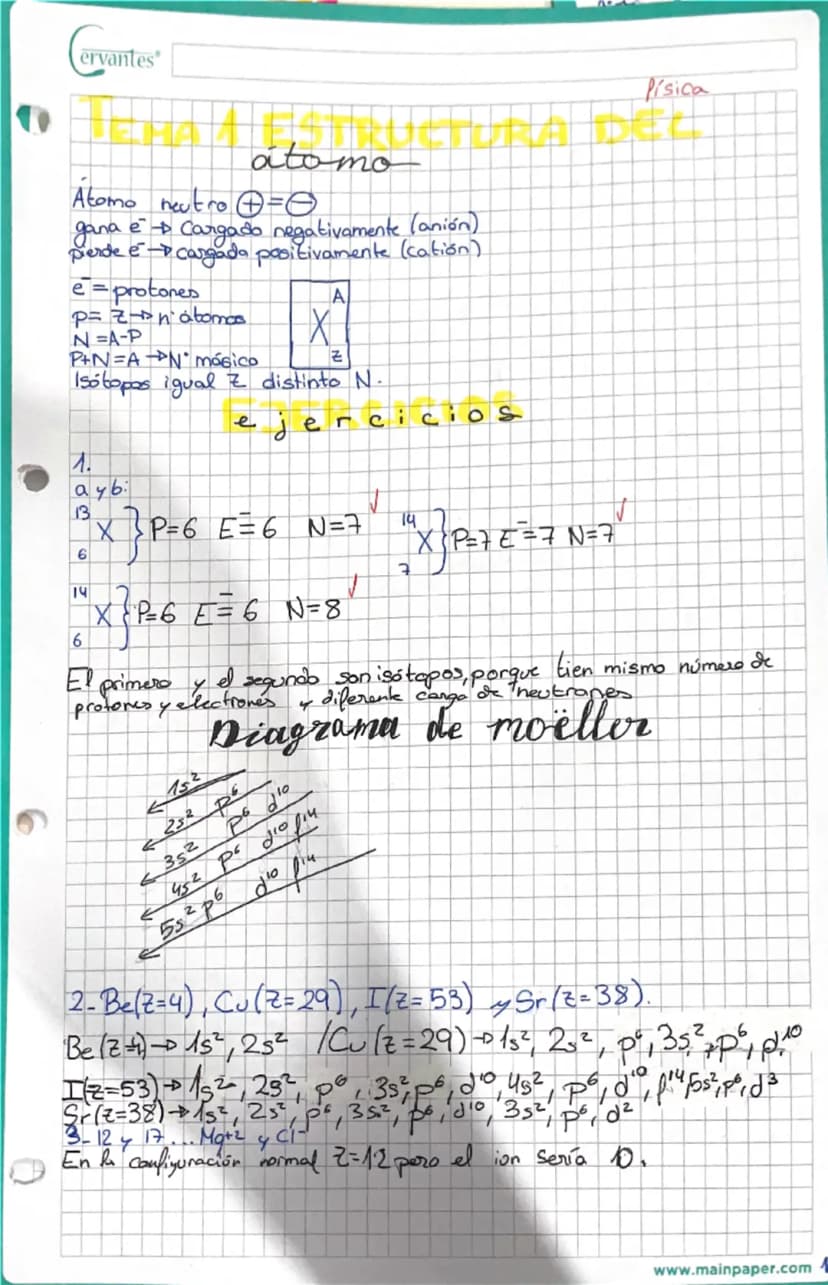 Cervantes®
física
TEMA 1 ESTRUCTURA DEL
átomo
Átomo neutro ⊕=⊖
gana e⁻ → Cargado negativamente (anión)
pierde e⁻ → cargada positivamente (catión)
e⁻=protones
p= Z→n° átomos
N=A-P
P+N=A →N° másico
A
X
Z
Isótopos igual Z distinto N.
EJERCICIOS
ejercicios
1.
a y b:
¹³₆X } P=6 E⁻=6 N=7 ✓ ¹⁴₇X } P=7 E⁻=7 N=7 ✓
¹⁴₆X } P=6 E⁻=6 N=8 ✓
El primero y el segundo son isótopos, porque tien mismo número de
protones y electrones y diferente carga de neutrones
Diagrama de moëller
1s²
2s² p⁶
3s² p⁶ d¹⁰
4s² p⁶ d¹⁰ f¹⁴
5s² p⁶ d¹⁰ f¹⁴
2- Be(Z=4), Cu(Z=29), I(Z=53) y Sr(Z=38).
Be(Z=4)→ 1s², 2s² /Cu(Z=29)→1s², 2s², p⁶, 3s², p⁶, d¹⁰
I(Z=53)→1s², 2s², p⁶, 3s², p⁶, d¹⁰, 4s², p⁶, d¹⁰, f¹⁴, 5s², p⁶, d³
Sr(Z=38)→1s², 2s², p⁶, 3s², p⁶, d¹⁰, 3s², p⁶, d²
3- 12 y 17... Mg+2 y Cl-
En la configuración normal Z=12 pero el ion sería 10.
www.mainpaper.com
1